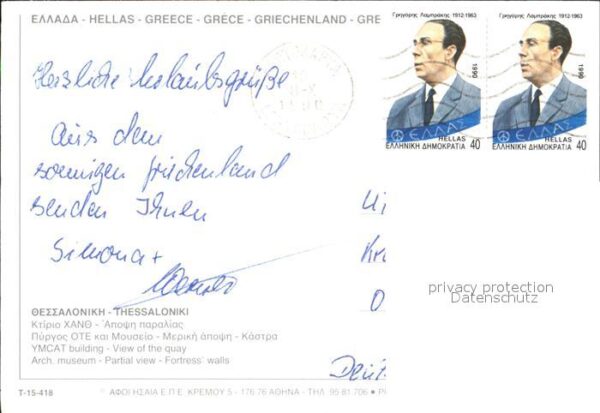 ΕΛΛΑΔΑ - HELLAS - GREECE - GRÈCE - GRIECHENLAND - GRE
Γρηγόρης Λαμπράκης 1912-1963
Γρηγόρης Λαμπράκης 1912-1963
1990
1990
ΕΛΛΑΣ
ΕΛΛΑΣ
HELLAS
HELLAS
ΕΛΛΗΝΙΚΗ ΔΗΜΟΚΡΑΤΙΑ 40
ΕΛΛΗΝΙΚΗ ΔΗΜΟΚΡΑΤΙΑ 40
Herzliche Urlaubsgrüße
Aus dem
sonnigen Griechenland
senden Ihnen
Simona +
privacy protection
Datenschutz
ΘΕΣΣΑΛΟΝΙΚΗ - THESSALONIKI
Κτίριο ΧΑΝΘ - Άποψη παραλίας
Πύργος ΟΤΕ και Μουσείο - Μερική άποψη - Κάστρα
YMCAT building - View of the quay
Arch. museum - Partial view - Fortress' walls
T-15-418
ΑΦΟΙ ΗΣΑΪΑ Ε.Π.Ε. ΚΡΕΜΟΥ 5 - 176 76 ΑΘΗΝΑ - ΤΗΛ. 95 81.706